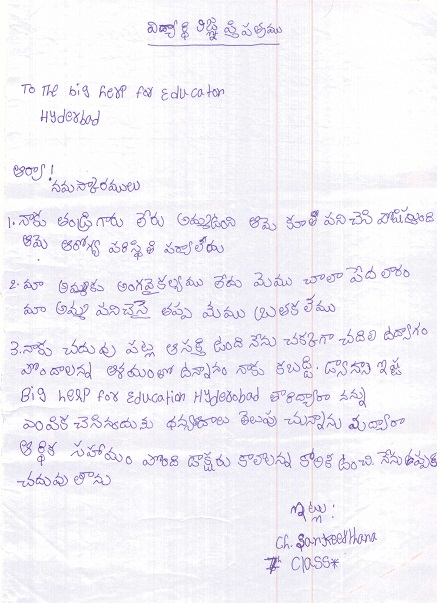 విద్యార్థి విజ్ఞప్తి పత్రము
To The big help for Educaton
Hyderbad
ఆర్యా!
నమస్కారములు
1. నాకు తండ్రిగారు లేరు అమ్మఉంది ఆమె కూలి పనిచేసి పోషిస్తుంది
ఆమె ఆరోగ్య పరిస్థితి పర్వాలేదు
2. మా అమ్మకు అంగవైకల్యము లేదు మేము చాలా పేదలారం
మా అమ్మ పనిచేస్తె తప్ప మేము బ్రతకలేము
3. నాకు చదువు పట్ల ఆసక్తి ఉంది నేను చక్కగా చదివి ఉద్యోగం
పొందాలన్న ఆశయంతో ఉన్నాను నాకు కబడ్డి. డ్యాన్సు ఇష్టం
Big help for Education Hyderobad తారద్వారా నన్ను
ఎంపిక చేసినందుకు ధన్యవాదాలు తెలుపు చున్నాను మీద్వారా
ఆర్థిక సహాయం పొంది డాక్టరు కావాలన్న కోరిక ఉంది. నేను తప్పక
చదువుతాను
ఇట్లు:
Ch. Sankeerthana
7 Class*